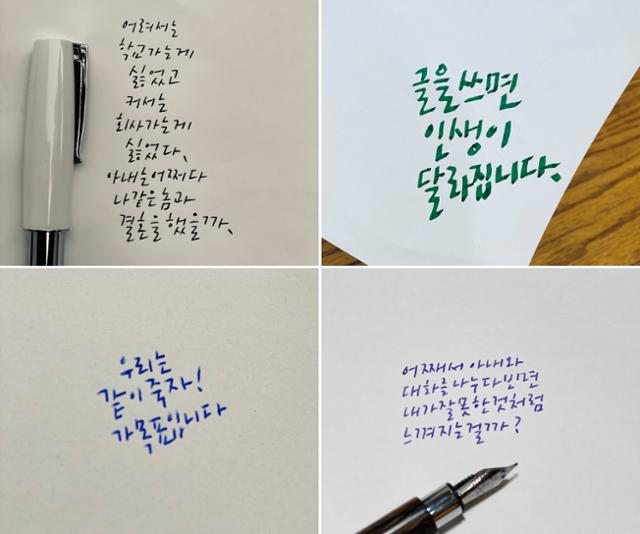 어려서는
학교가는게
싫었고
커서는
회사가는게
싫었다.
아내는어쩌다
나같은놈과
결혼을했을까.
글을쓰면
인생이
달라집니다.
우리는
같이죽자!
가목표입니다
어째서아내와
대화를나누다보면
내가잘못한것처럼
느껴지는걸까?